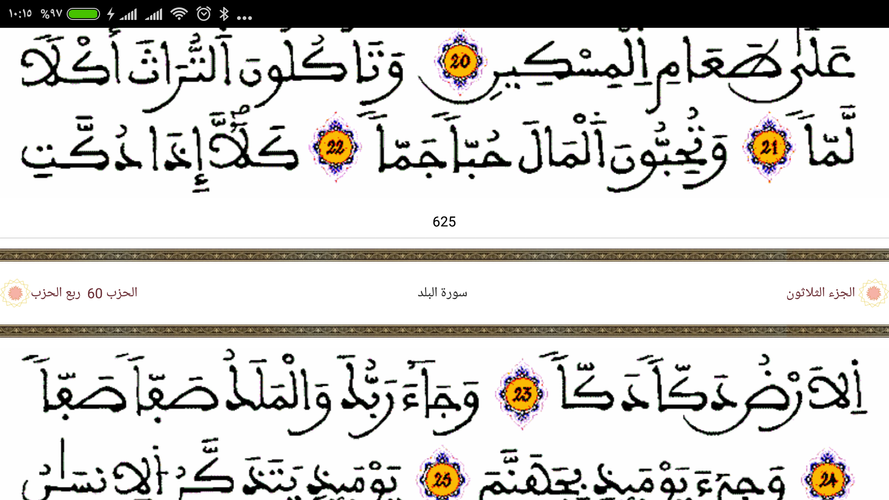 ١٠:١٥ %٩٧
عَلَىٰ طَعَامِ اِ۬لْمِسْكِينِ 20 وَتَاكُلُونَ اَ۬لتُّرَاثَ أَكْلاٗ
لَّمّاٗ 21 وَتُحِبُّونَ اَ۬لْمَالَ حُبّاٗ جَمّاٗ 22 كَلَّآۖ إِذَا دُكَّتِ
625
الجزء الثلاثون سورة البلد الحزب 60 ربع الحزب
اِ۬لَارْضُ دَكّاٗ دَكّاٗ 23 وَجَآءَ رَبُّكَ وَالْمَلَكُ صَفّاٗ صَفّاٗ
24 وَجِےٓءَ يَوْمَئِذِۢ بِجَهَنَّمَ 25 يَوْمَئِذٖ يَتَذَكَّرُ اُ۬لِانسَٰنُ